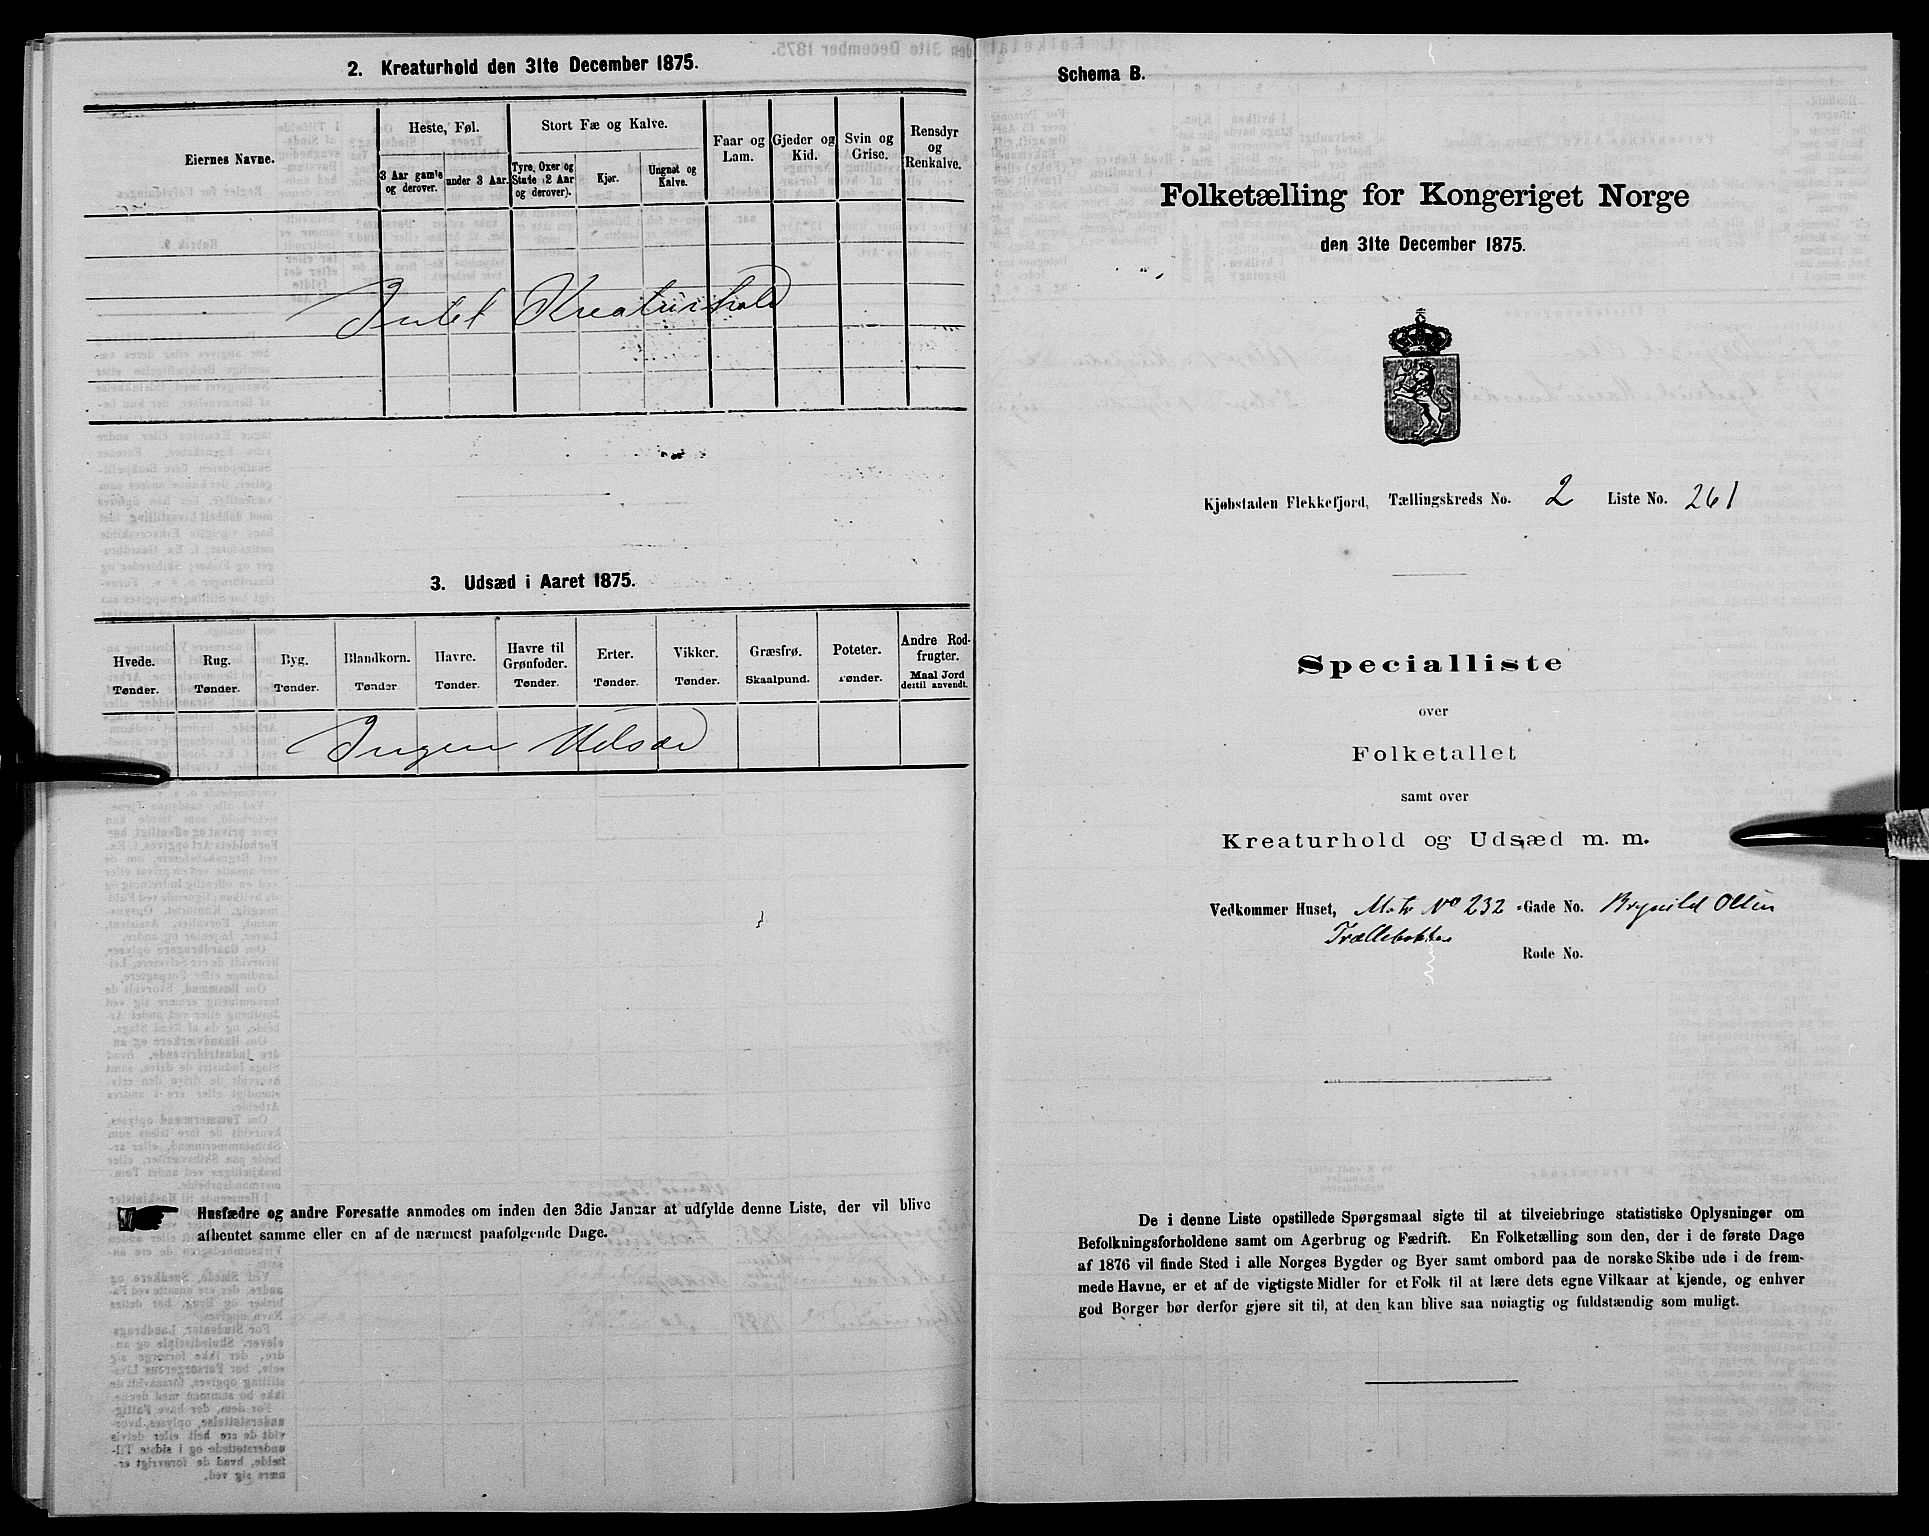 2. Kreaturhold den 31te December 1875.
Eiernes Navne.
Heste, Føl.
3 Aar gamle og derover.
under 3 Aar.
Stort Fæ og Kalve.
Tyre, Oxer og Stude (2 Aar og derover).
Kjør.
Ungnøt og Kalve.
Faar og Lam.
Gjeder og Kid.
Svin og Grise.
Rensdyr og Renkalve.
Intet Kreaturhold
3. Udsæd i Aaret 1875.
Hvede. Tønder.
Rug. Tønder.
Byg. Tønder.
Blandkorn. Tønder
Havre. Tønder.
Havre til Grønfoder. Tønder.
Erter. Tønder.
Vikker. Tønder.
Græsfrø. Skaalpund.
Poteter. Tønder.
Andre Rodfrugter. Maal Jord dertil anvendt.
Ingen Udsæd
Husfædre og andre Foresatte anmodes om inden den 3die Januar at udfylde denne Liste, der vil blive
afhentet samme eller en af de nærmest paafølgende Dage.
Schema B.
Folketælling for Kongeriget Norge
den 31te December 1875.
Kjøbstaden Flekkefjord, Tællingskreds No. 2 Liste No. 261
Specialliste
over
Folketallet
samt over
Kreaturhold og Udsæd m. m.
Vedkommer Huset, Mat No 232 -Gade No. Brynild Olsen
Trællebakken
Rode No.
De i denne Liste opstillede Spørgsmaal sigte til at tilveiebringe statistiske Oplysninger om
Befolkningsforholdene samt om Agerbrug og Fædrift. En Folketælling som den, der i de første Dage
af 1876 vil finde Sted i alle Norges Bygder og Byer samt ombord paa de norske Skibe ude i de frem-
mede Havne, er et af de vigtigste Midler for et Folk til at lære dets egne Vilkaar at kjende, og enhver
god Borger bør derfor gjøre sit til, at den kan blive saa nøiagtig og fuldstændig som muligt.